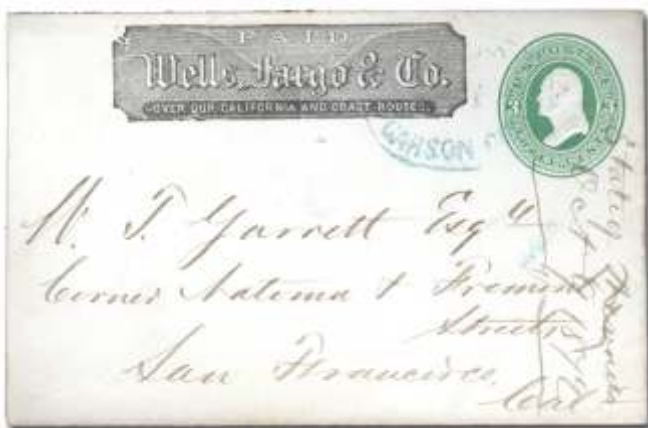 PAID
Wells, Fargo & Co.
OVER OUR CALIFORNIA AND COAST ROUTES.
U.S. POSTAGE
3 3
THREE CENTS
CARSON
W. T. Garrett Esq
Corner Natoma & Fremont
Streets
San Francisco
Cal